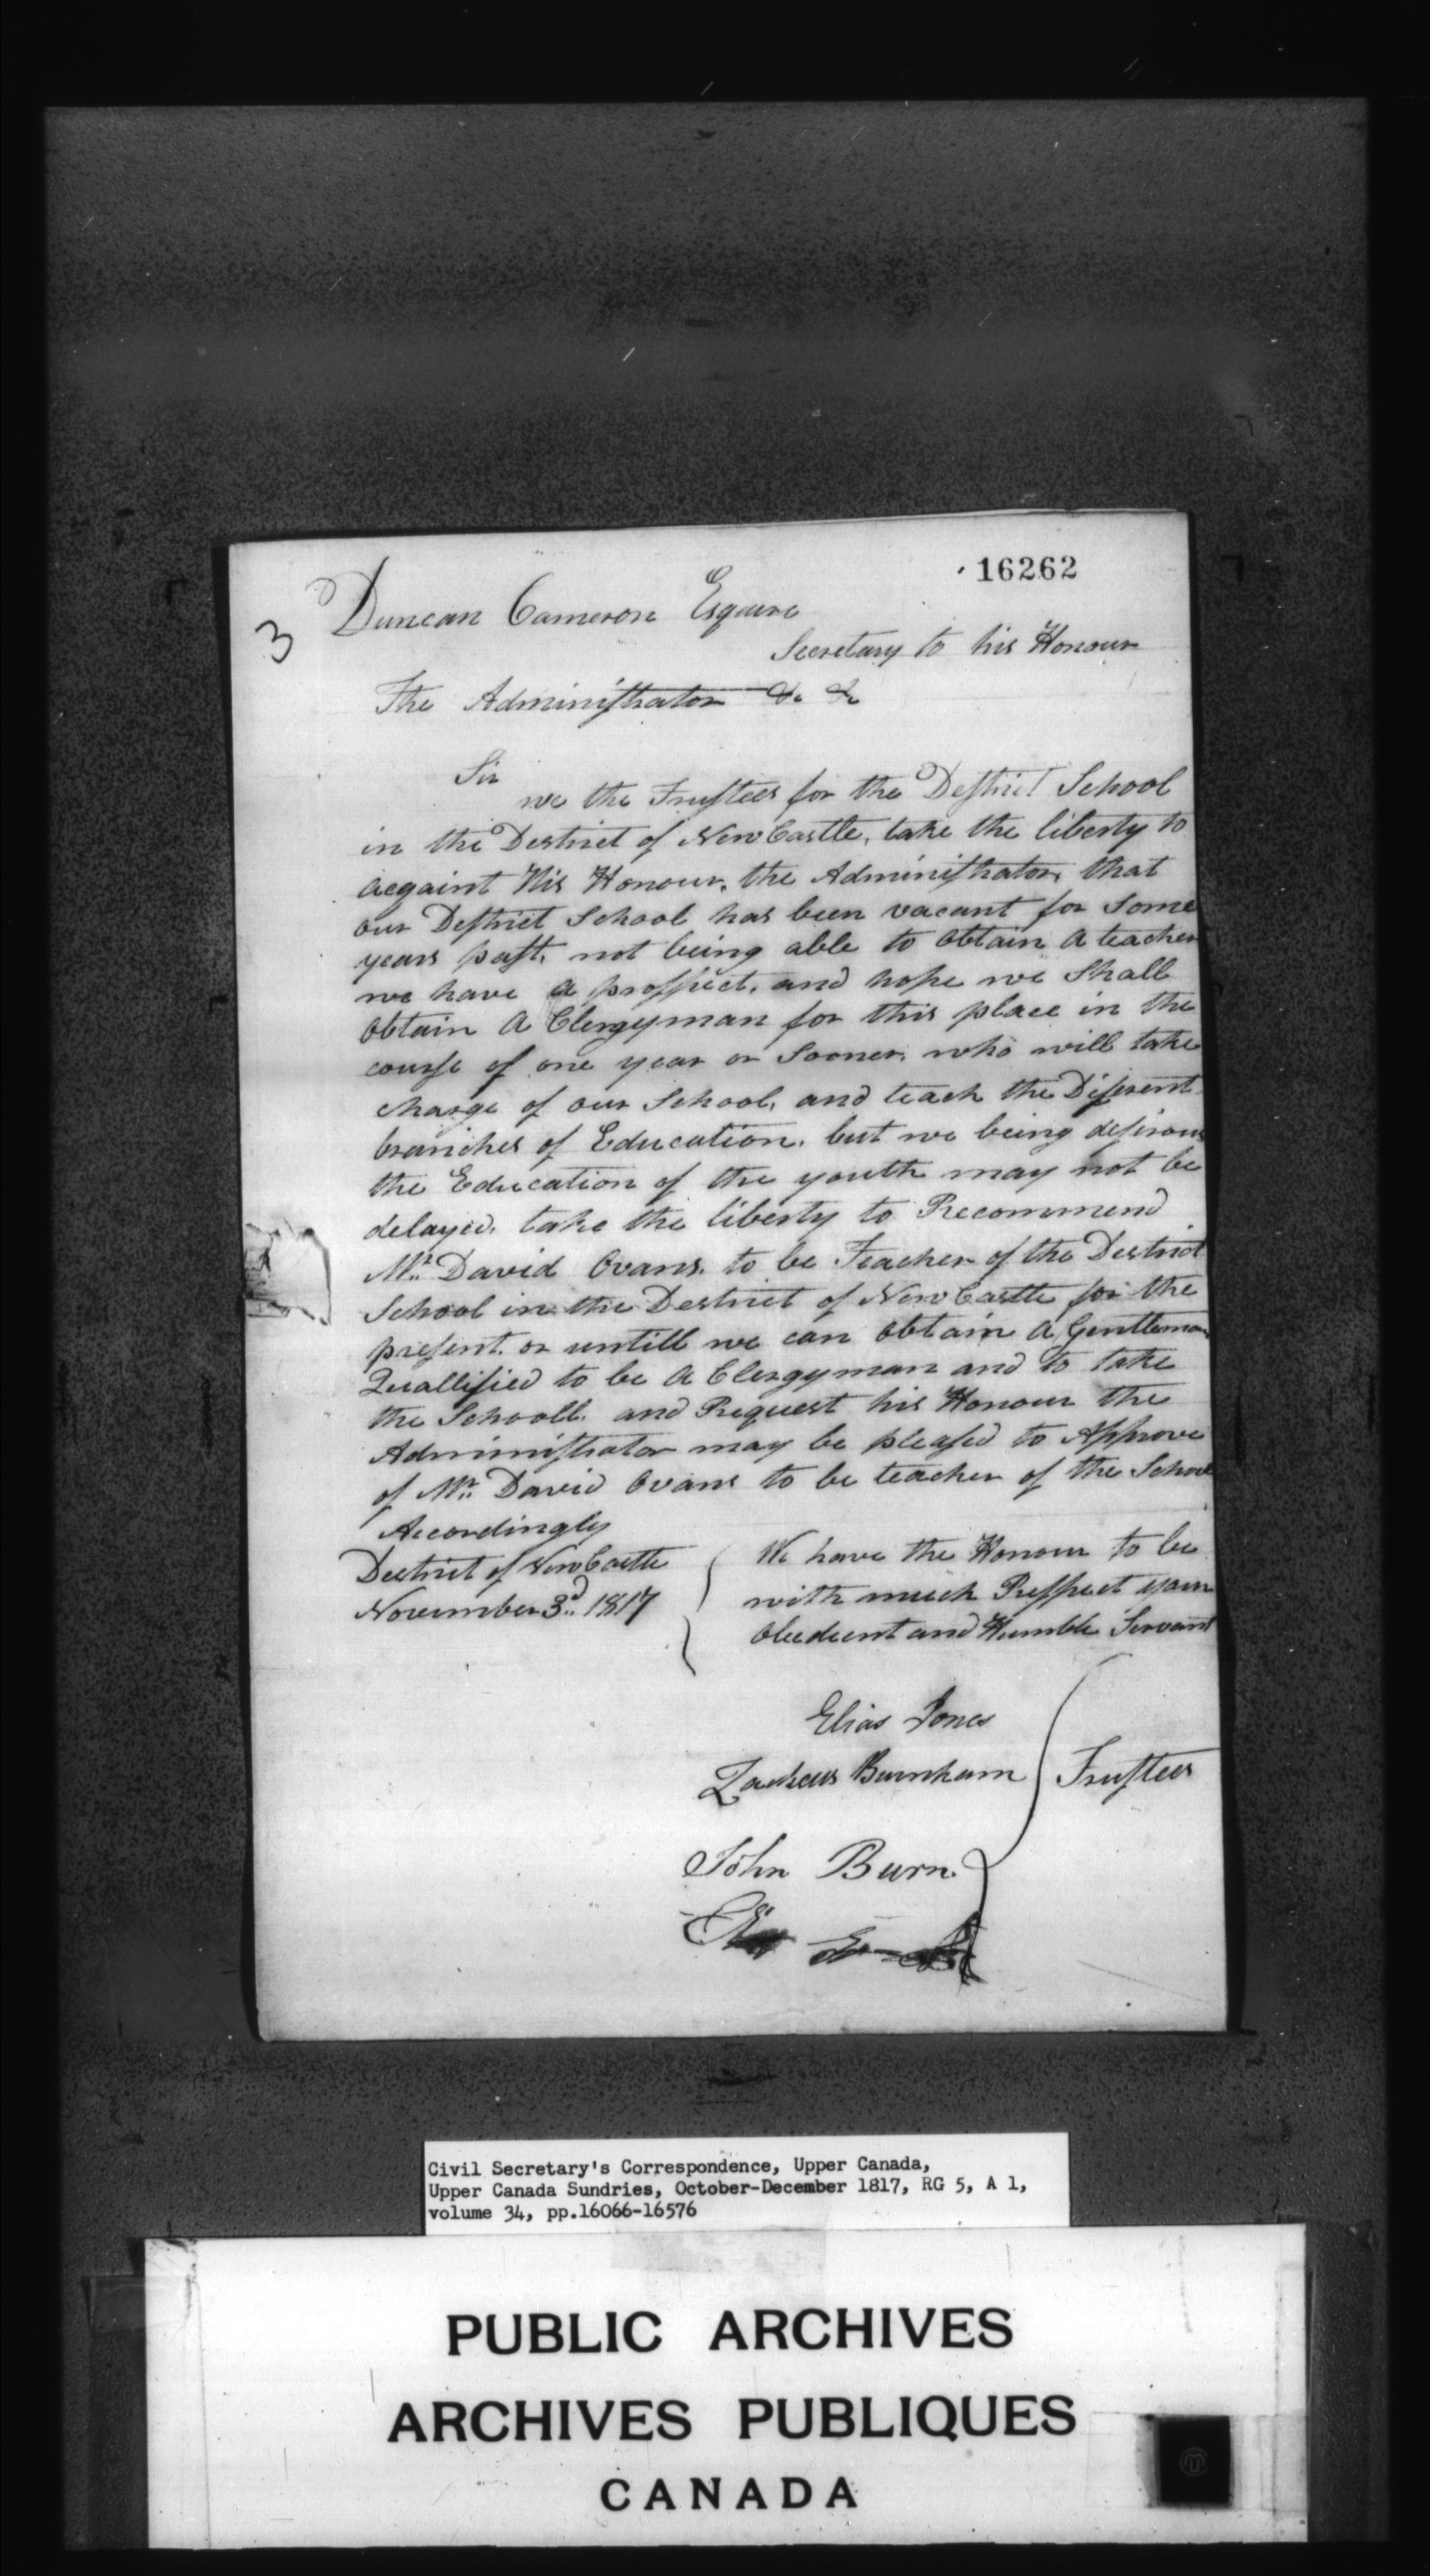 16262
3
Duncan Cameron Esquire
Secretary to his Honour
The Administrator &c &c
Sir
we the Trustees for the Destrict School
in the Destrict of NewCastle, take the liberty to
acquaint His Honour, the Administrator, that
our Destrict School has been vacant for some
years past, not being able to obtain a teacher
we have a prosspect, and hope we shall
obtain a Clergyman for this place in the
course of one year or sooner, who will take
charge of our School, and teach the Diferent
branches of Education, but we being desirous
the Education of the youth may not be
delayed, take the liberty to Recommend
Mr. David Ovans. to be Teacher of the Destrict
School in the Destrict of NewCastle for the
present, or untill we can obtain a Gentleman
Quallified to be a Clergyman and to take
the Schooll. and Request his Honour the
Administrator may be pleased to Approve
of Mr. David Ovans to be teacher of the School
Accordingly
District of NewCastle
November 3d. 1817
We have the Honour to be
with much Resspect your
Obedient and Humble Servant
Elias Jones
Zacheus Burnham
Trustees
John Burn
Civil Secretary's Correspondence, Upper Canada,
Upper Canada Sundries, October-December 1817, RG 5, A 1,
volume 34, pp.16066-16576
PUBLIC ARCHIVES
ARCHIVES PUBLIQUES
CANADA